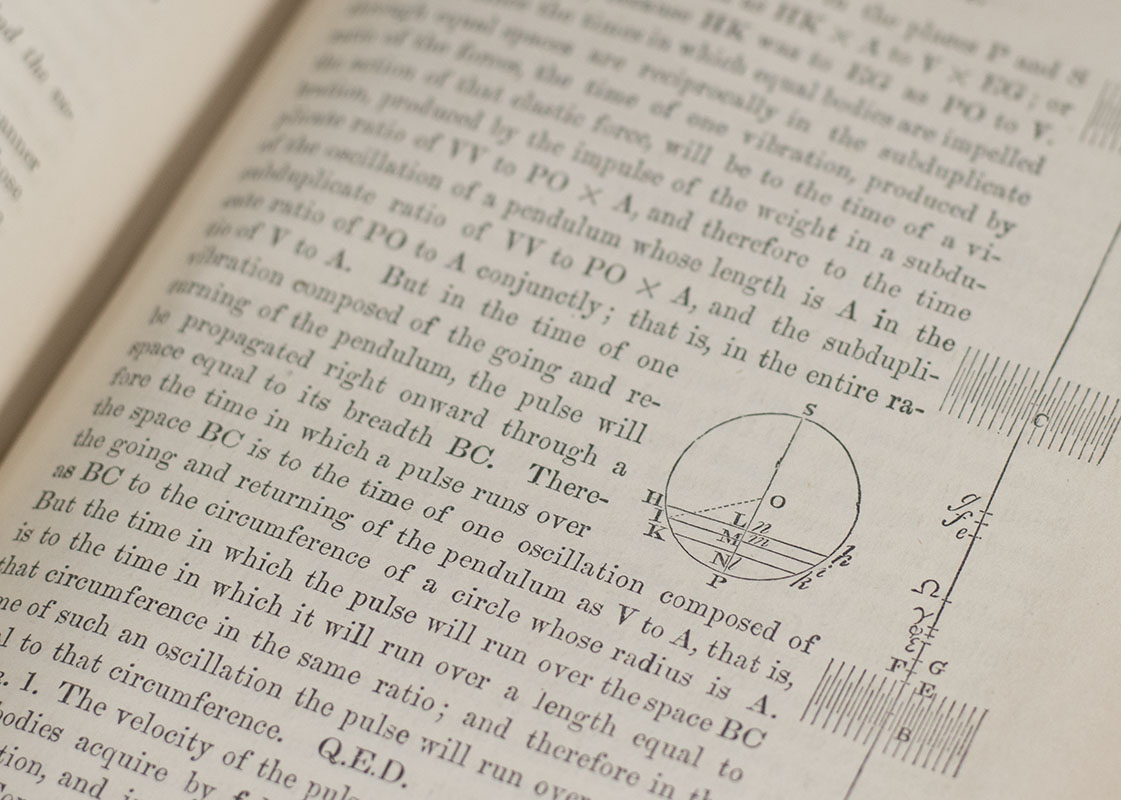 d the sur-
anner
ose
the places P and S
to HK × A to V × EG; or
because HK was to EG as PO to V.
the times in which equal bodies are impelled
through equal spaces are reciprocally in the subduplicate
ratio of the forces, the time of one vibration, produced by
the action of that elastic force, will be to the time of a vi-
bration, produced by the impulse of the weight in a subdu-
plicate ratio of VV to PO × A, and therefore to the time
of the oscillation of a pendulum whose length is A in the
subduplicate ratio of VV to PO × A, and the subdupli-
cate ratio of PO to A conjunctly; that is, in the entire ra-
tio of V to A. But in the time of one
vibration composed of the going and re-
turning of the pendulum, the pulse will
be propagated right onward through a
space equal to its breadth BC. There-
fore the time in which a pulse runs over
the space BC is to the time of one oscillation composed of
the going and returning of the pendulum as V to A, that is,
as BC to the circumference of a circle whose radius is A.
But the time in which the pulse will run over the space BC
is to the time in which it will run over a length equal to
that circumference in the same ratio; and therefore in th
me of such an oscillation the pulse will run over
l to that circumference. Q.E.D.
. 1. The velocity of the puls
bodies acquire by f
tion, and i
S
O
H
I
K
L n
M m
N l
P
h
i
k
C
g
f
e
Ω
γ
ε
F G
E
B